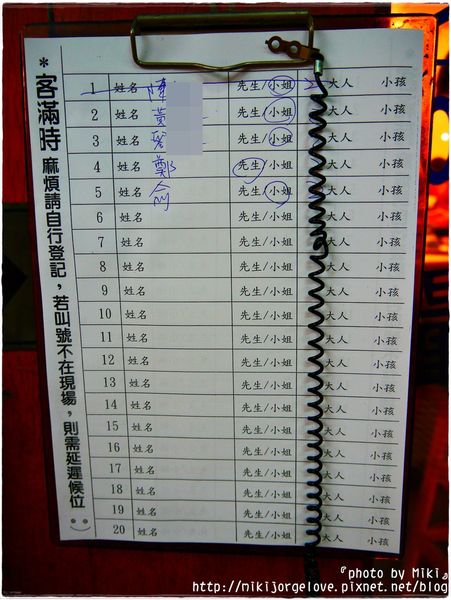 *客滿時 麻煩請自行登記，若叫號不在現場，則需延遲候位
1 姓名 陳 先生/小姐 大人 小孩
2 姓名 黃 先生/小姐 大人 小孩
3 姓名 先生/小姐 大人 小孩
4 姓名 鄭 先生/小姐 大人 小孩
5 姓名 俞 先生/小姐 大人 小孩
6 姓名 先生/小姐 大人 小孩
7 姓名 先生/小姐 大人 小孩
8 姓名 先生/小姐 大人 小孩
9 姓名 先生/小姐 大人 小孩
10 姓名 先生/小姐 大人 小孩
11 姓名 先生/小姐 大人 小孩
12 姓名 先生/小姐 大人 小孩
13 姓名 先生/小姐 大人 小孩
14 姓名 先生/小姐 大人 小孩
15 姓名 先生/小姐 大人 小孩
16 姓名 先生/小姐 大人 小孩
17 姓名 先生/小姐 大人 小孩
18 姓名 先生/小姐 大人 小孩
19 姓名 先生/小姐 大人 小孩
20 姓名 先生/小姐 大人 小孩
『photo by Miki』
http://mikijorgelove.pixnet.net/blog